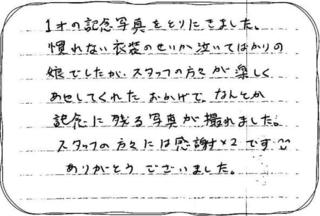 1才の記念写真をとりにきました。
慣れない衣装のせいか泣いてばかりの
娘でしたが、スタッフの方々が楽しく
あやしてくれたおかげで、なんとか
記念に残る写真が撮れました。
スタッフの方々には感謝×2です
ありがとうございました。